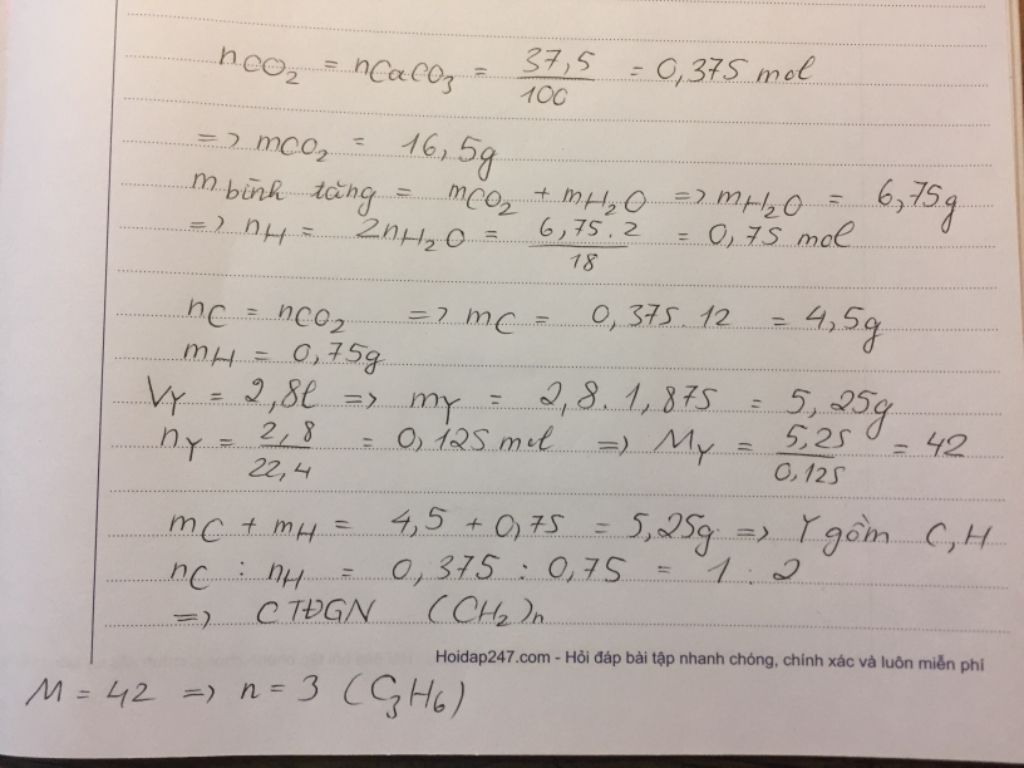 nCO₂ = nCaCO₃ = 37,5/100 = 0,375 mol
=> mCO₂ = 16,5g
m bình tăng = mCO₂ + mH₂O => mH₂O = 6,75g
=> nH = 2nH₂O = 6,75.2/18 = 0,75 mol
nC = nCO₂ => mC = 0,375.12 = 4,5g
mH = 0,75g
VY = 2,8l => mY = 2,8.1,875 = 5,25g
nY = 2,8/22,4 = 0,125 mol => MY = 5,25/0,125 = 42
mC + mH = 4,5 + 0,75 = 5,25g => Y gồm C,H
nC : nH = 0,375 : 0,75 = 1 : 2
=> CTĐGN (CH₂)n
Hoidap247.com - Hỏi đáp bài tập nhanh chóng, chính xác và luôn miễn phí
M = 42 => n = 3 (C₃H₆)